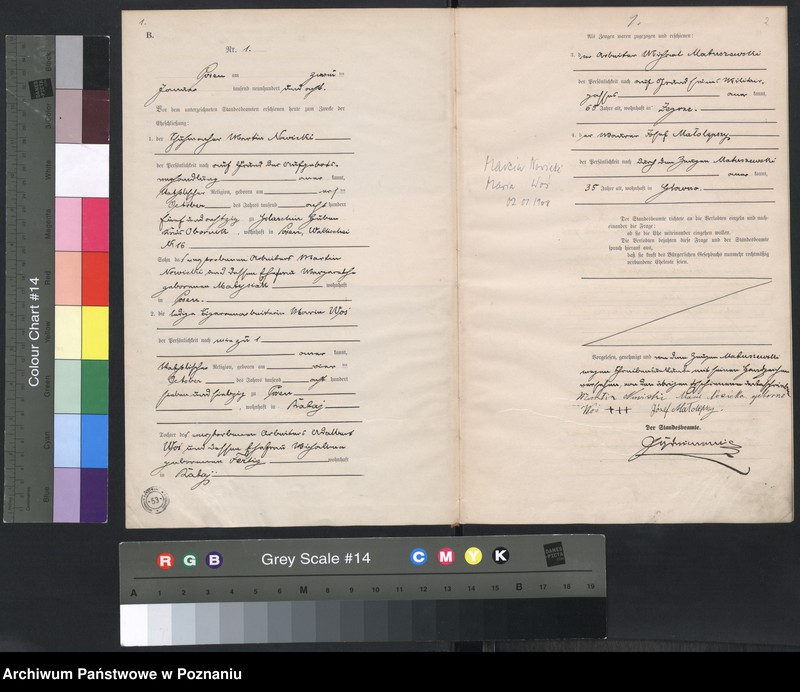 1.
B.
Nr. 1.
Posen am zweiten
Januar tausend neunhundert und acht.
Vor dem unterzeichneten Standesbeamten erschienen heute zum Zweck der
Eheschließung:
1. der Schuhmacher Martin Nowicki
der Persönlichkeit nach auf Grund der Aufgebots-
verhandlung kannt,
katholischer Religion, geboren am
October des Jahres tausend acht hundert
fünf und achtzig zu
Kreis Obornik, wohnhaft in Posen, Wallischei
№ 16
Sohn des verstorbenen Arbeiters Martin
Nowicki und dessen Ehefrau Margarethe
geborenen Matysiak wohnhaft
in Posen.
2. die ledige Cigarrenarbeiterin Maria Woś
der Persönlichkeit nach wie zu 1
kannt,
katholischer Religion, geboren am
October des Jahres tausend acht hundert
sieben und siebzig zu Posen
, wohnhaft in Rataj
Tochter des verstorbenen Arbeiters Adalbert
Woś und dessen Ehefrau
geborenen wohnhaft
in Rataj
53
1.
2
Als Zeugen waren zugezogen und erschienen:
3. der Arbeiter Michael Matuszewski
der Persönlichkeit nach auf Grund seines Militär-
passes kannt,
Jahre alt, wohnhaft in Zegrze.
4. der Maurer Josef Małolepszy
der Persönlichkeit nach durch den Zeugen Matuszewski
kannt,
35 Jahre alt, wohnhaft in Glowno.
Marcin Nowicki
Maria Woś
02.01.1908
Der Standesbeamte richtete an die Verlobten einzeln und nach-
einander die Frage:
ob sie die Ehe miteinander eingehen wollen.
Die Verlobten bejahten diese Frage und der Standesbeamte
sprach hierauf aus,
daß sie kraft des Bürgerlichen Gesetzbuchs nunmehr rechtmäßig
verbundene Eheleute seien.
Vorgelesen, genehmigt und von dem Zeugen Matuszewski
wegen Schreibensunkunde mit seinem Handzeichen
versehen, von den übrigen Erschienenen unterschrieben
Martin Nowicki Maria Nowicka geborene
Woś +++ Józef Małolepszy.
Der Standesbeamte.
Colour Chart #14
Blue
Cyan
Green
Yellow
Red
Magenta
White
Black
R G B Grey Scale #14 C M Y K
DANES
PICTA
A 1 2 3 4 5 6 M 8 9 10 11 12 13 14 15 B 17 18 19
Archiwum Państwowe w Poznaniu